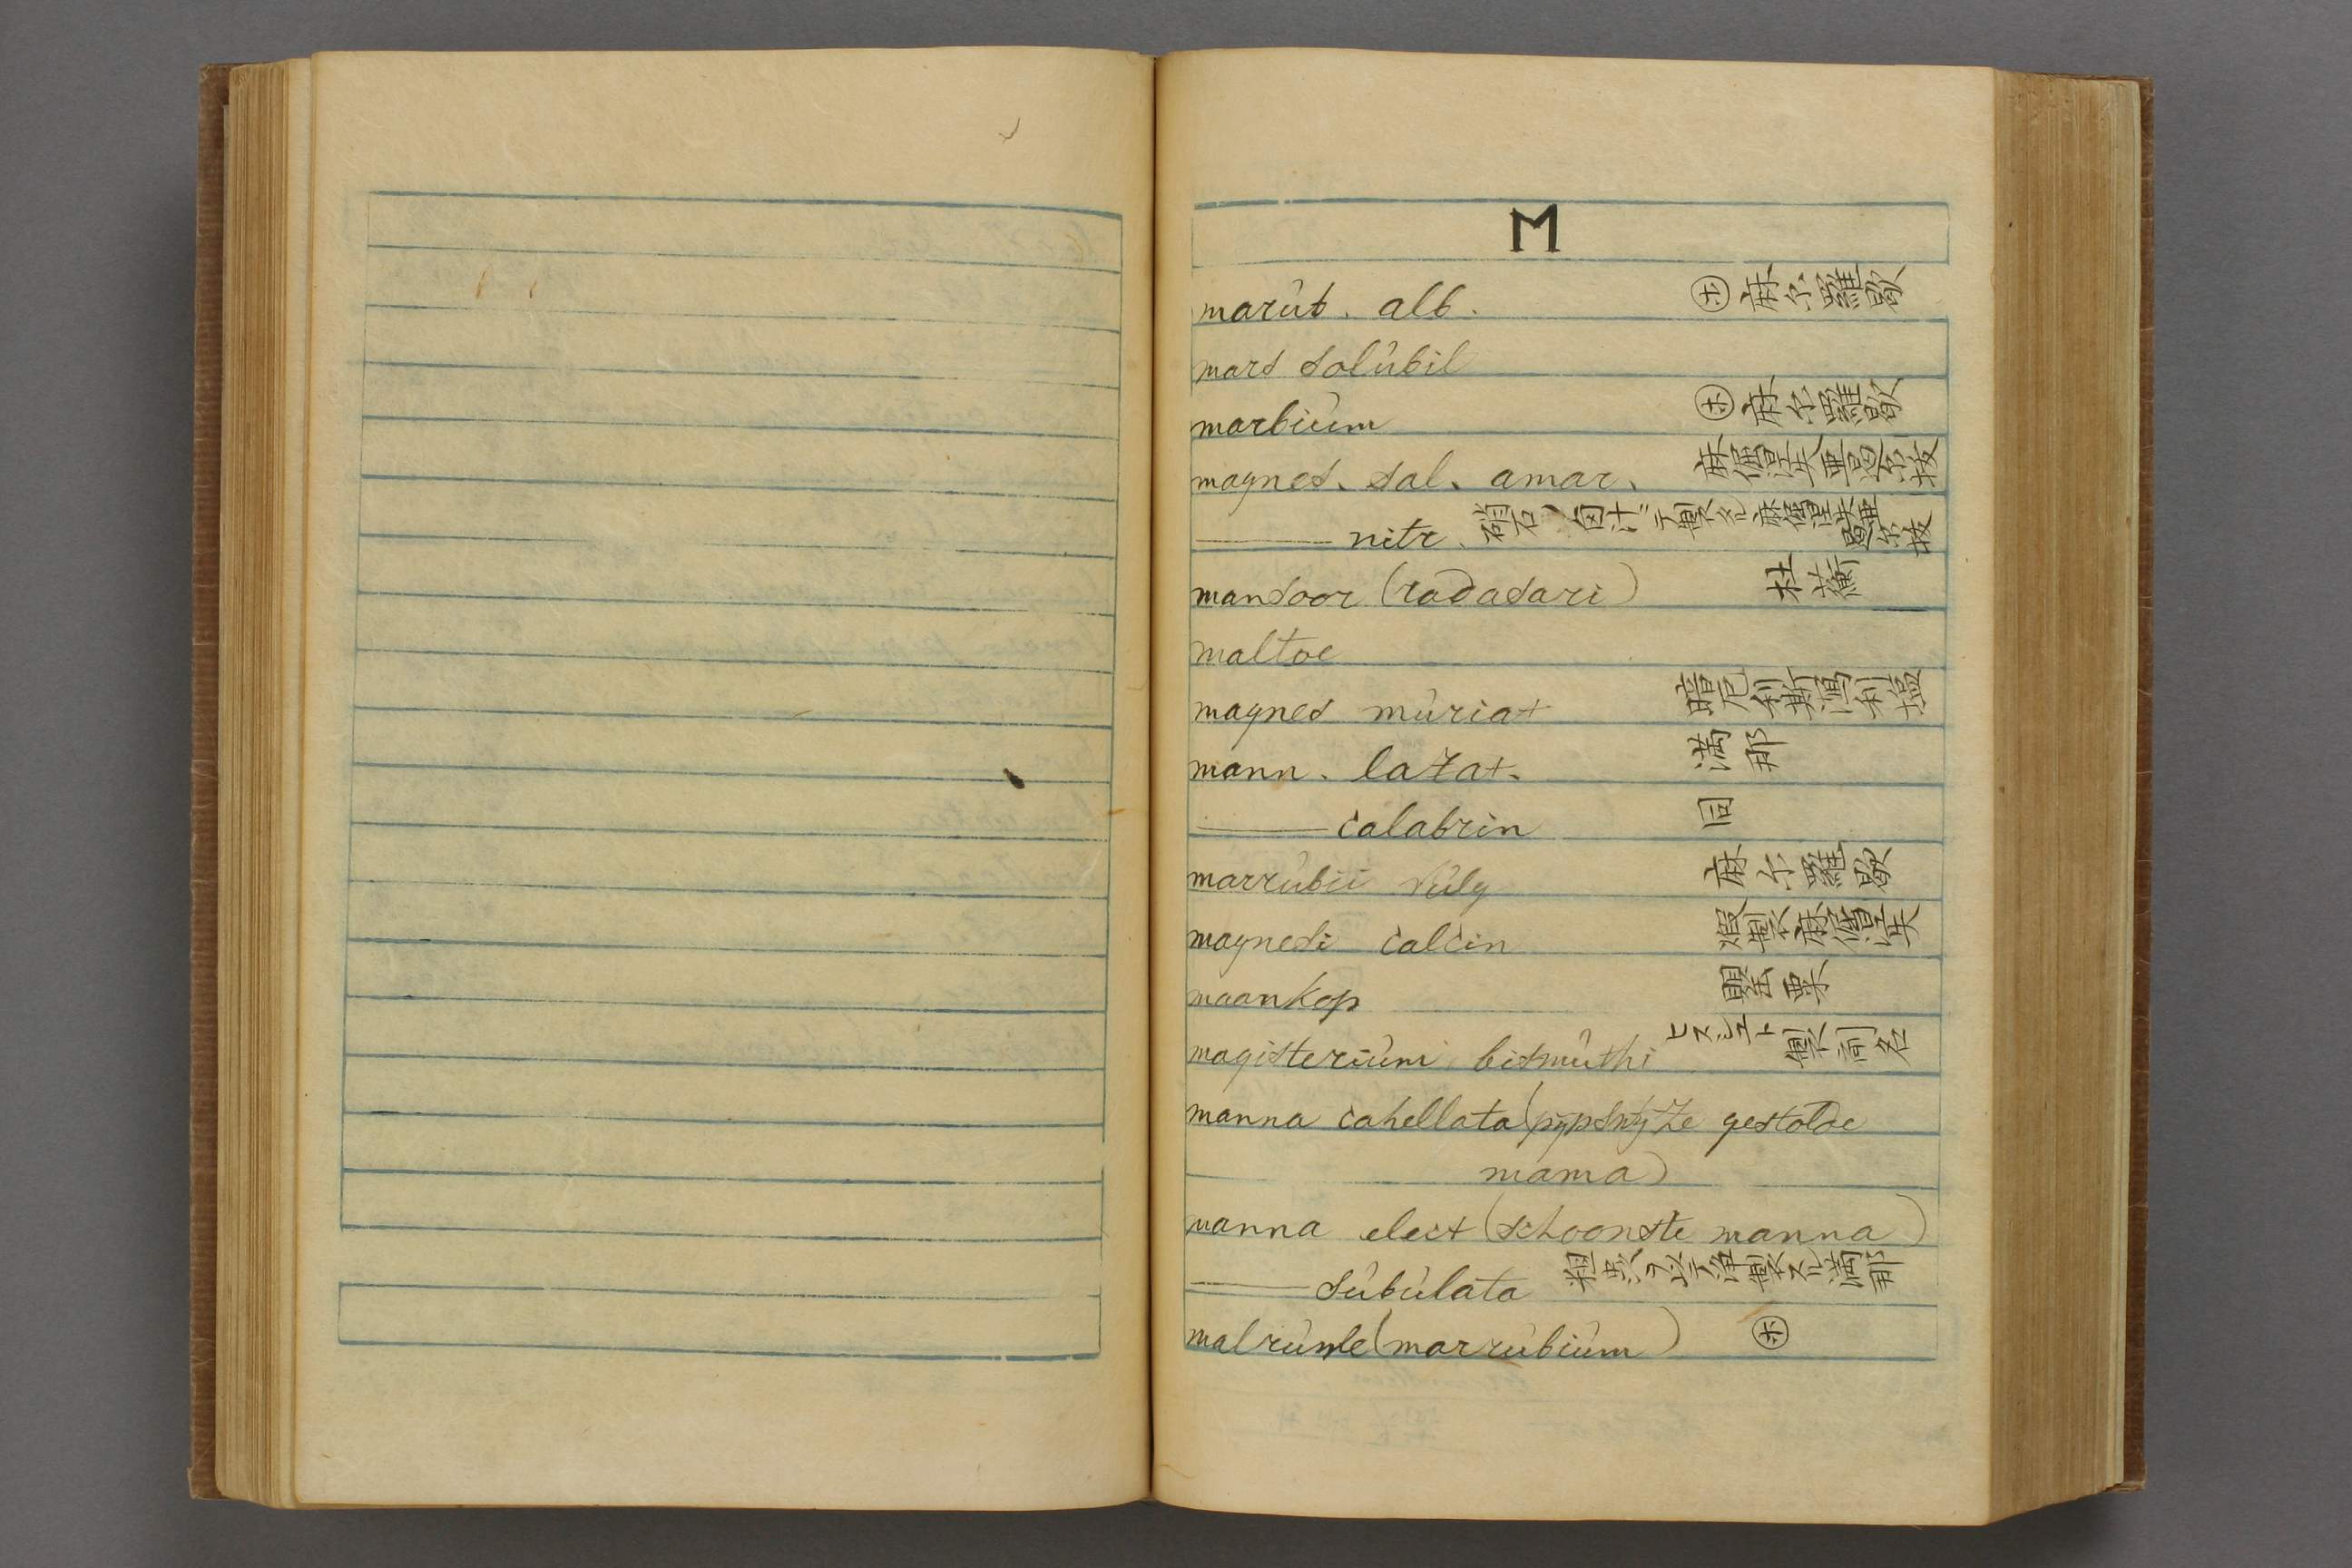 M
marúb. alb. ㋭ 麻尓羅歇
mars solúbil
marbiúm ㋭ 麻尓羅歇
magnes. sal. amar. 麻倔涅失亜
——— nitr. 硝石ノ卤汁ニテ製スル麻倔涅失亜
mansoor (radasari) 杜蘅
maltoe
magnes múriat 暗厄利斯瀉利塩
mann. lazat. 満那
——— calabrin 同
marrúbii vúlg 麻尓羅歇
magnesi calcin 煆製麻倔涅失
maankop 罌粟
magisteriúm bismúthi ヒスミュト製剤名
manna cahellata (pijpswijze gestolde
mama)
manna elect (schoonste manna)
——— súbúlata 以テ浄製スル満那
malrúwe (marrúbiúm) ㋭